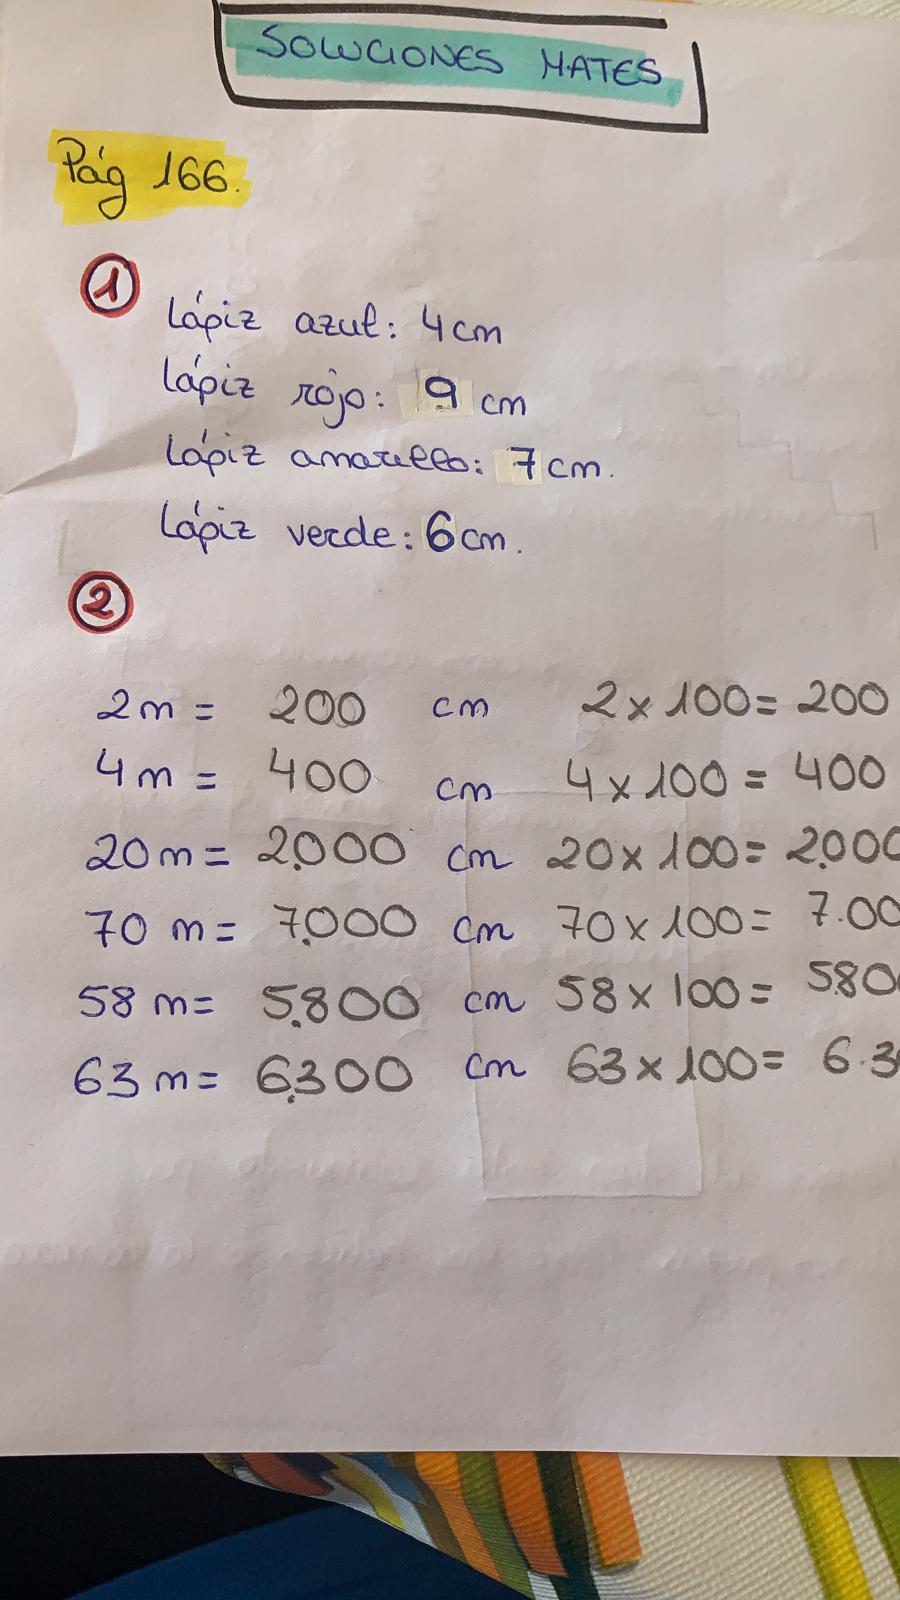 SOLUCIONES MATES
Pág 166.
1
Lápiz azul: 4cm
Lápiz rojo: 9 cm
Lápiz amarillo: 7cm.
Lápiz verde: 6cm.
2
2m = 200 cm 2 x 100 = 200
4m = 400 cm 4 x 100 = 400
20m = 2.000 cm 20 x 100 = 2.000
70 m = 7.000 cm 70 x 100 = 7.00
58 m = 5.800 cm 58 x 100 = 5.80
63 m = 6.300 cm 63 x 100 = 6.3